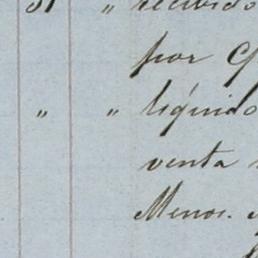 31 " recibido
por
" " líquido
venta
Menos.